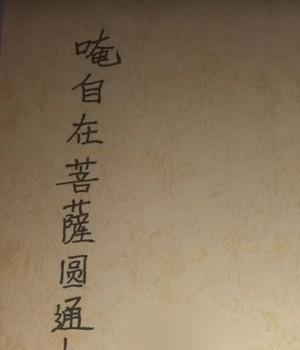 唵自在菩薩圆通